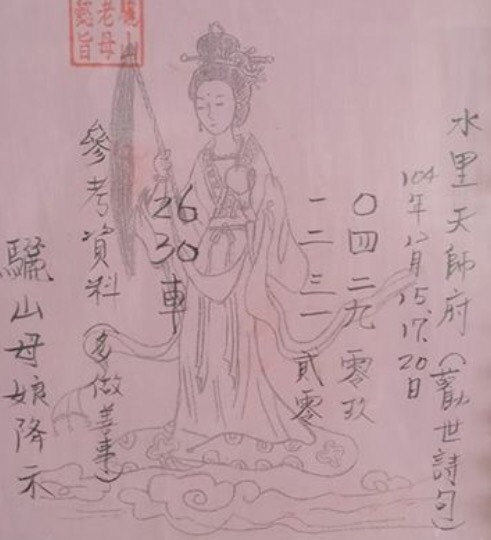 水里天師府(勸世詩句)
104年12月15.17.20日
〇四二九零玖
一二三一貳零
26
30車
參考資料(多做善事)
驪山母娘降示
驪山
老母
懿旨